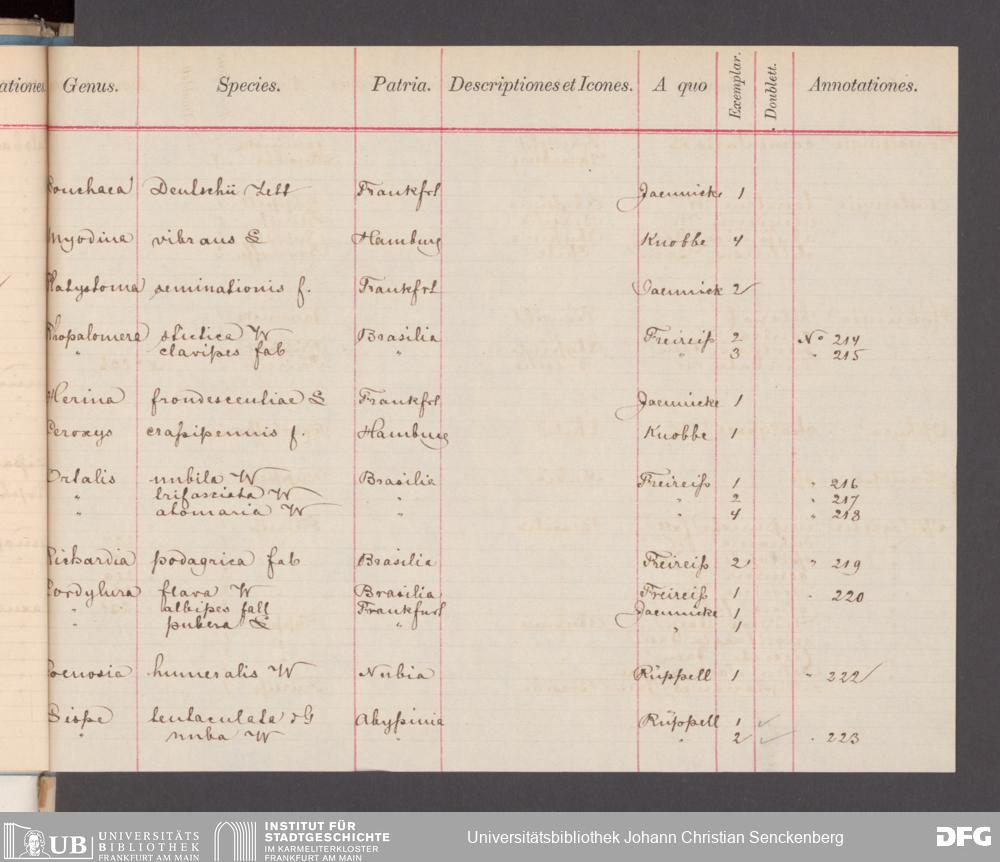 ationes Genus. Species. Patria. Descriptiones et Icones. A quo Exemplar. Doublett. Annotationes.
onchaea Deutschii Zett Frankfrt Jaennicke 1
Myodina vibrans L Hamburg Knobbe 4
Platystoma seminationis f. Frankfrt Jaennick 2
Rhopalomera stictica W Brasilia Freireiß 2 No 214
" clavipes fab " " 3 " 215
Herina frondescentiae L Frankfrt Jaennicke 1
Ceroxys craßipennis f. Hamburg Knobbe 1
Ortalis nubila W Brasilia Freireiß 1 " 216
" trifasciata W " " 2 " 217
" atomaria W " " 4 " 218
Richardia podagrica fab Brasilia Freireiß 2 " 219
Cordylura flava W Brasilia Freireiß 1 " 220
" albipes fall Frankfurt Jaennicke 1
" pubera L " " 1
Coenosia humeralis W Nubia Rüppell 1 " 222
Lispe tentaculata dG Abyßinia Rüppell 1 ✓
" nuba W " " 2 ✓ " 223
UB UNIVERSITÄTS BIBLIOTHEK FRANKFURT AM MAIN
INSTITUT FÜR STADTGESCHICHTE IM KARMELITERKLOSTER FRANKFURT AM MAIN
Universitätsbibliothek Johann Christian Senckenberg
DFG